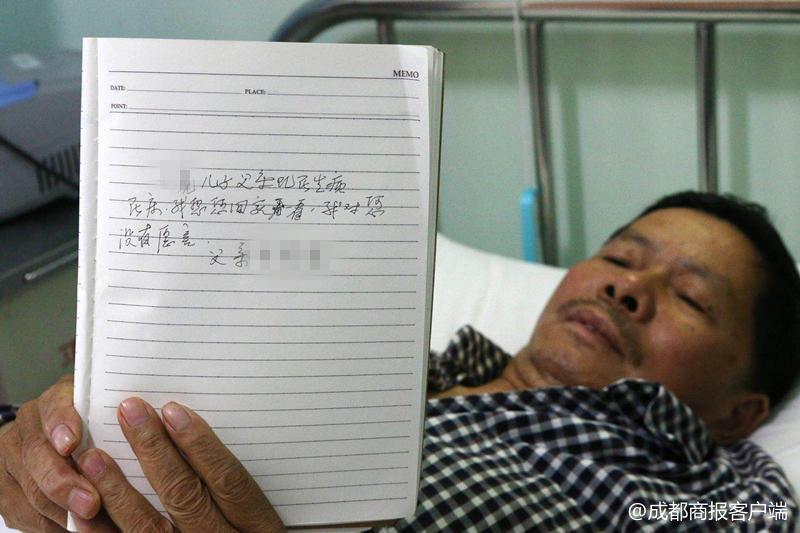 MEMO
DATE:
PLACE:
POINT:
儿子父亲现在生病
在床.我想您回家看看,我对您
没有恶意.
父亲
@成都商报客户端